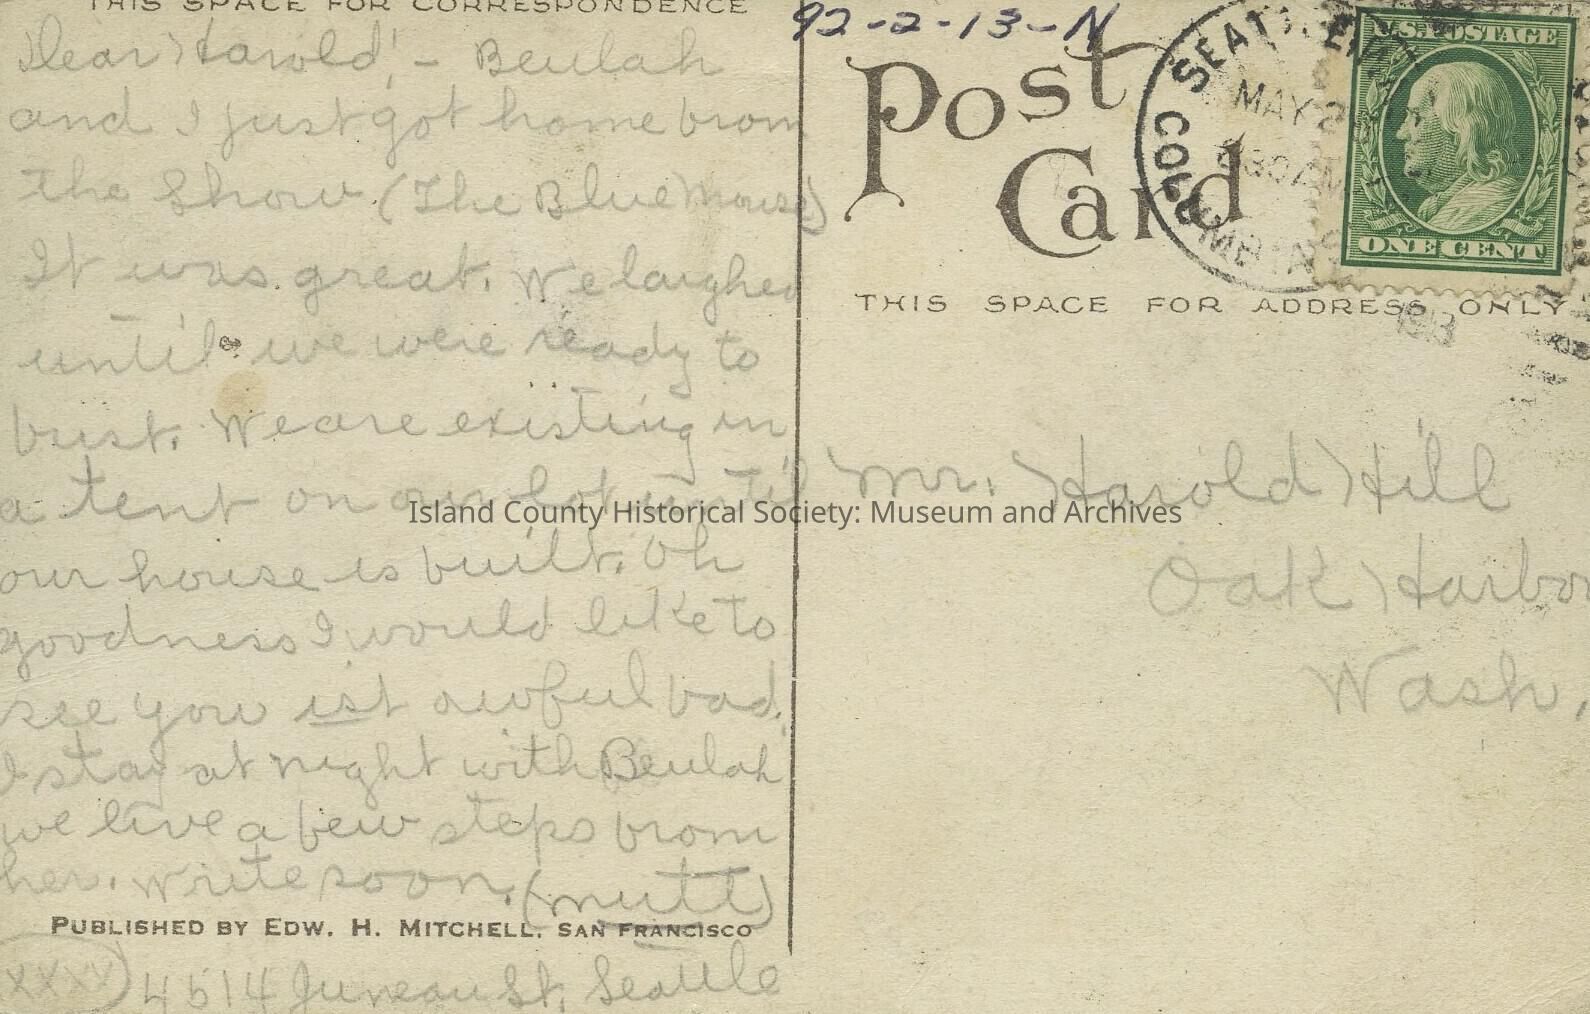 THIS SPACE FOR CORRESPONDENCE
Dear Harold! - Beulah
and I just got home from
the show (The Blue Mouse)
It was great. We laughed
until we were ready to
bust. We are existing in
a tent on our lot until
our house is built. Oh
goodness I would like to
see you ist awful bad.
I stay at night with Beulah
we live a few steps from
her. Write soon. (Mutt)
PUBLISHED BY EDW. H. MITCHELL, SAN FRANCISCO
(XXXX) 4514 Juneau St. Seattle
92-2-13-N
Post
Card
SEATTLE
MAY 2
30 AM
COLUMBIA
1913
U.S. POSTAGE
ONE CENT
THIS SPACE FOR ADDRESS ONLY
Mr. Harold Hill
Oak Harbor
Wash.
Island County Historical Society: Museum and Archives